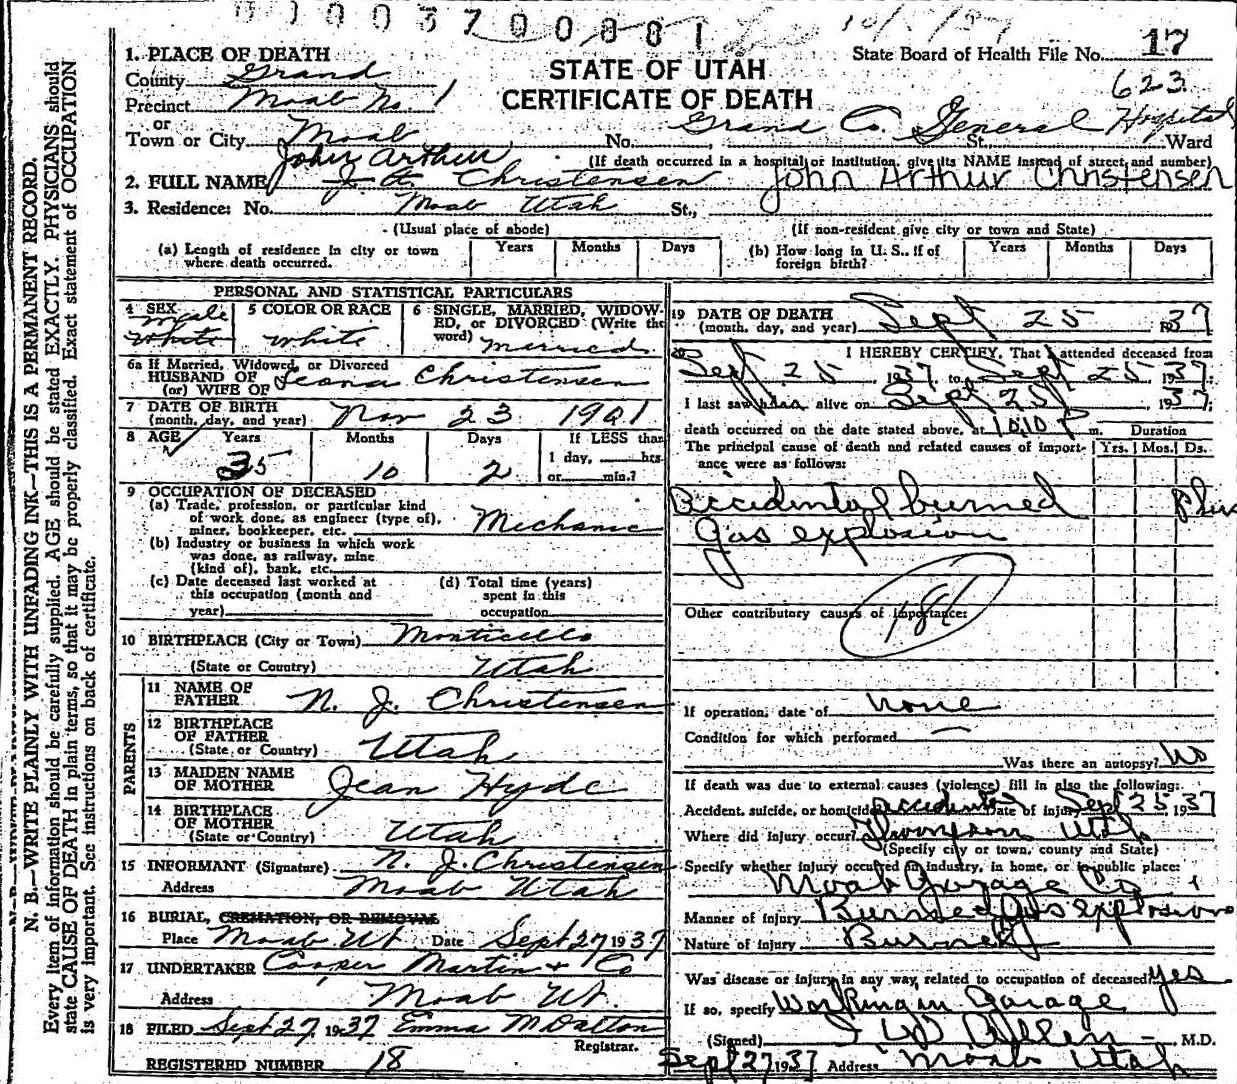 0 1 0 0 3 7 0 0 0 8 1 10/1/37
State Board of Health File No. 17
STATE OF UTAH
CERTIFICATE OF DEATH
623
1. PLACE OF DEATH
County Grand
Precinct Moab No. 1
or
Town or City Moab No. Grand Co. General Hospital St., Ward
(If death occurred in a hospital or institution, give its NAME instead of street and number)
John Arthur
2. FULL NAME J. A. Christensen John Arthur Christensen
3. Residence: No. Moab Utah St.,
(Usual place of abode) (If non-resident give city or town and State)
(a) Length of residence in city or town where death occurred. Years Months Days
(b) How long in U. S., if of foreign birth? Years Months Days
PERSONAL AND STATISTICAL PARTICULARS
4 SEX Male White
5 COLOR OR RACE White
6 SINGLE, MARRIED, WIDOWED, or DIVORCED (Write the word) Married
6a If Married, Widowed, or Divorced
HUSBAND OF
(or) WIFE OF Leona Christensen
7 DATE OF BIRTH
(month, day, and year) Nov 23 1901
8 AGE Years Months Days If LESS than
35 10 2 1 day, hrs.
or min.?
9 OCCUPATION OF DECEASED
(a) Trade, profession, or particular kind
of work done, as engineer (type of),
miner, bookkeeper, etc. Mechanic
(b) Industry or business in which work
was done, as railway, mine
(kind of), bank, etc.
(c) Date deceased last worked at
this occupation (month and
year)
(d) Total time (years)
spent in this
occupation
10 BIRTHPLACE (City or Town) Monticello
(State or Country) Utah
PARENTS
11 NAME OF
FATHER N. J. Christensen
12 BIRTHPLACE
OF FATHER
(State or Country) Utah
13 MAIDEN NAME
OF MOTHER Jean Hyde
14 BIRTHPLACE
OF MOTHER
(State or Country) Utah
15 INFORMANT (Signature) N. J. Christensen
Address Moab Utah
16 BURIAL, CREMATION, OR REMOVAL
Place Moab Ut Date Sept 27 1937
17 UNDERTAKER Cooper Martin & Co
Address Moab Ut.
18 FILED Sept 27 1937 Emma M Dalton
Registrar.
REGISTERED NUMBER 18
19 DATE OF DEATH
(month, day, and year) Sept 25 1937
20 I HEREBY CERTIFY, That I attended deceased from
Sept 25 1937 to Sept 25 1937;
I last saw him alive on Sept 25, 1937;
death occurred on the date stated above, at 10:10 P m. Duration
The principal cause of death and related causes of importance were as follows: Yrs. Mos. Ds.
Accidental burned
Gas explosion
181
Other contributory causes of importance:
If operation, date of None
Condition for which performed —
Was there an autopsy? No
If death was due to external causes (violence) fill in also the following:
Accident, suicide, or homicide accidental Date of injury Sept 25, 1937
Where did injury occur? Thompson Utah
(Specify city or town, county and State)
Specify whether injury occurred in industry, in home, or in public place:
Moab Garage Co
Manner of Injury Burned Gas explosion
Nature of Injury Burned
Was disease or injury in any way related to occupation of deceased? Yes
If so, specify Working in Garage
(Signed) I W Allen M.D.
Sept 27 1937 Address Moab Utah
N. B.—WRITE PLAINLY WITH UNFADING INK—THIS IS A PERMANENT RECORD.
Every item of information should be carefully supplied. AGE should be stated EXACTLY. PHYSICIANS should
state CAUSE OF DEATH in plain terms, so that it may be properly classified. Exact statement of OCCUPATION
is very important. See instructions on back of certificate.